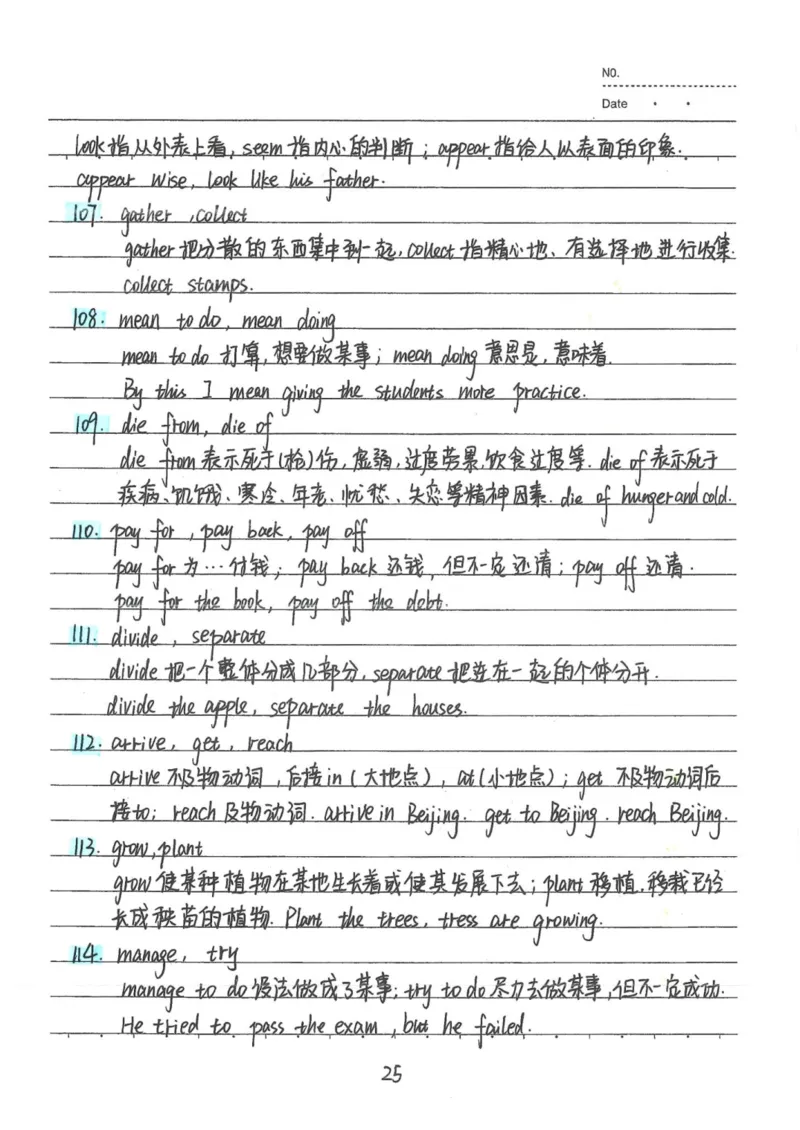 NO.
Date
look指从外表上看，seem指内心的判断；appear指给人以表面的印象.
appear wise, look like his father.
107. gather ,collect
gather把分散的东西集中到一起，collect指精心地、有选择地进行收集.
collect stamps.
108. mean to do, mean doing
mean to do 打算，想要做某事；mean doing 意思是，意味着.
By this I mean giving the students more practice.
109. die from, die of
die from表示死于(枪)伤，虚弱，过度劳累，饮食过度等. die of表示死于
疾病、饥饿、寒冷、年老、忧愁、失恋等精神因素. die of hunger and cold.
110. pay for , pay back, pay off
pay for为…付钱；pay back 还钱，但不一定还清；pay off 还清.
pay for the book, pay off the debt.
111. divide , separate
divide把一个整体分成几部分，separate把连在一起的个体分开.
divide the apple, separate the houses.
112. arrive, get, reach
arrive不及物动词，后接in(大地点)，at(小地点)；get 不及物动词后
接to；reach及物动词. arrive in Beijing. get to Beijing. reach Beijing.
113. grow, plant
grow使某种植物在某地生长着或使其发展下去；plant移植，移栽已经
长成秧苗的植物. Plant the trees, tress are growing.
114. manage, try
manage to do设法做成了某事；try to do尽力去做某事，但不一定成功.
He tried to pass the exam, but he failed.
25